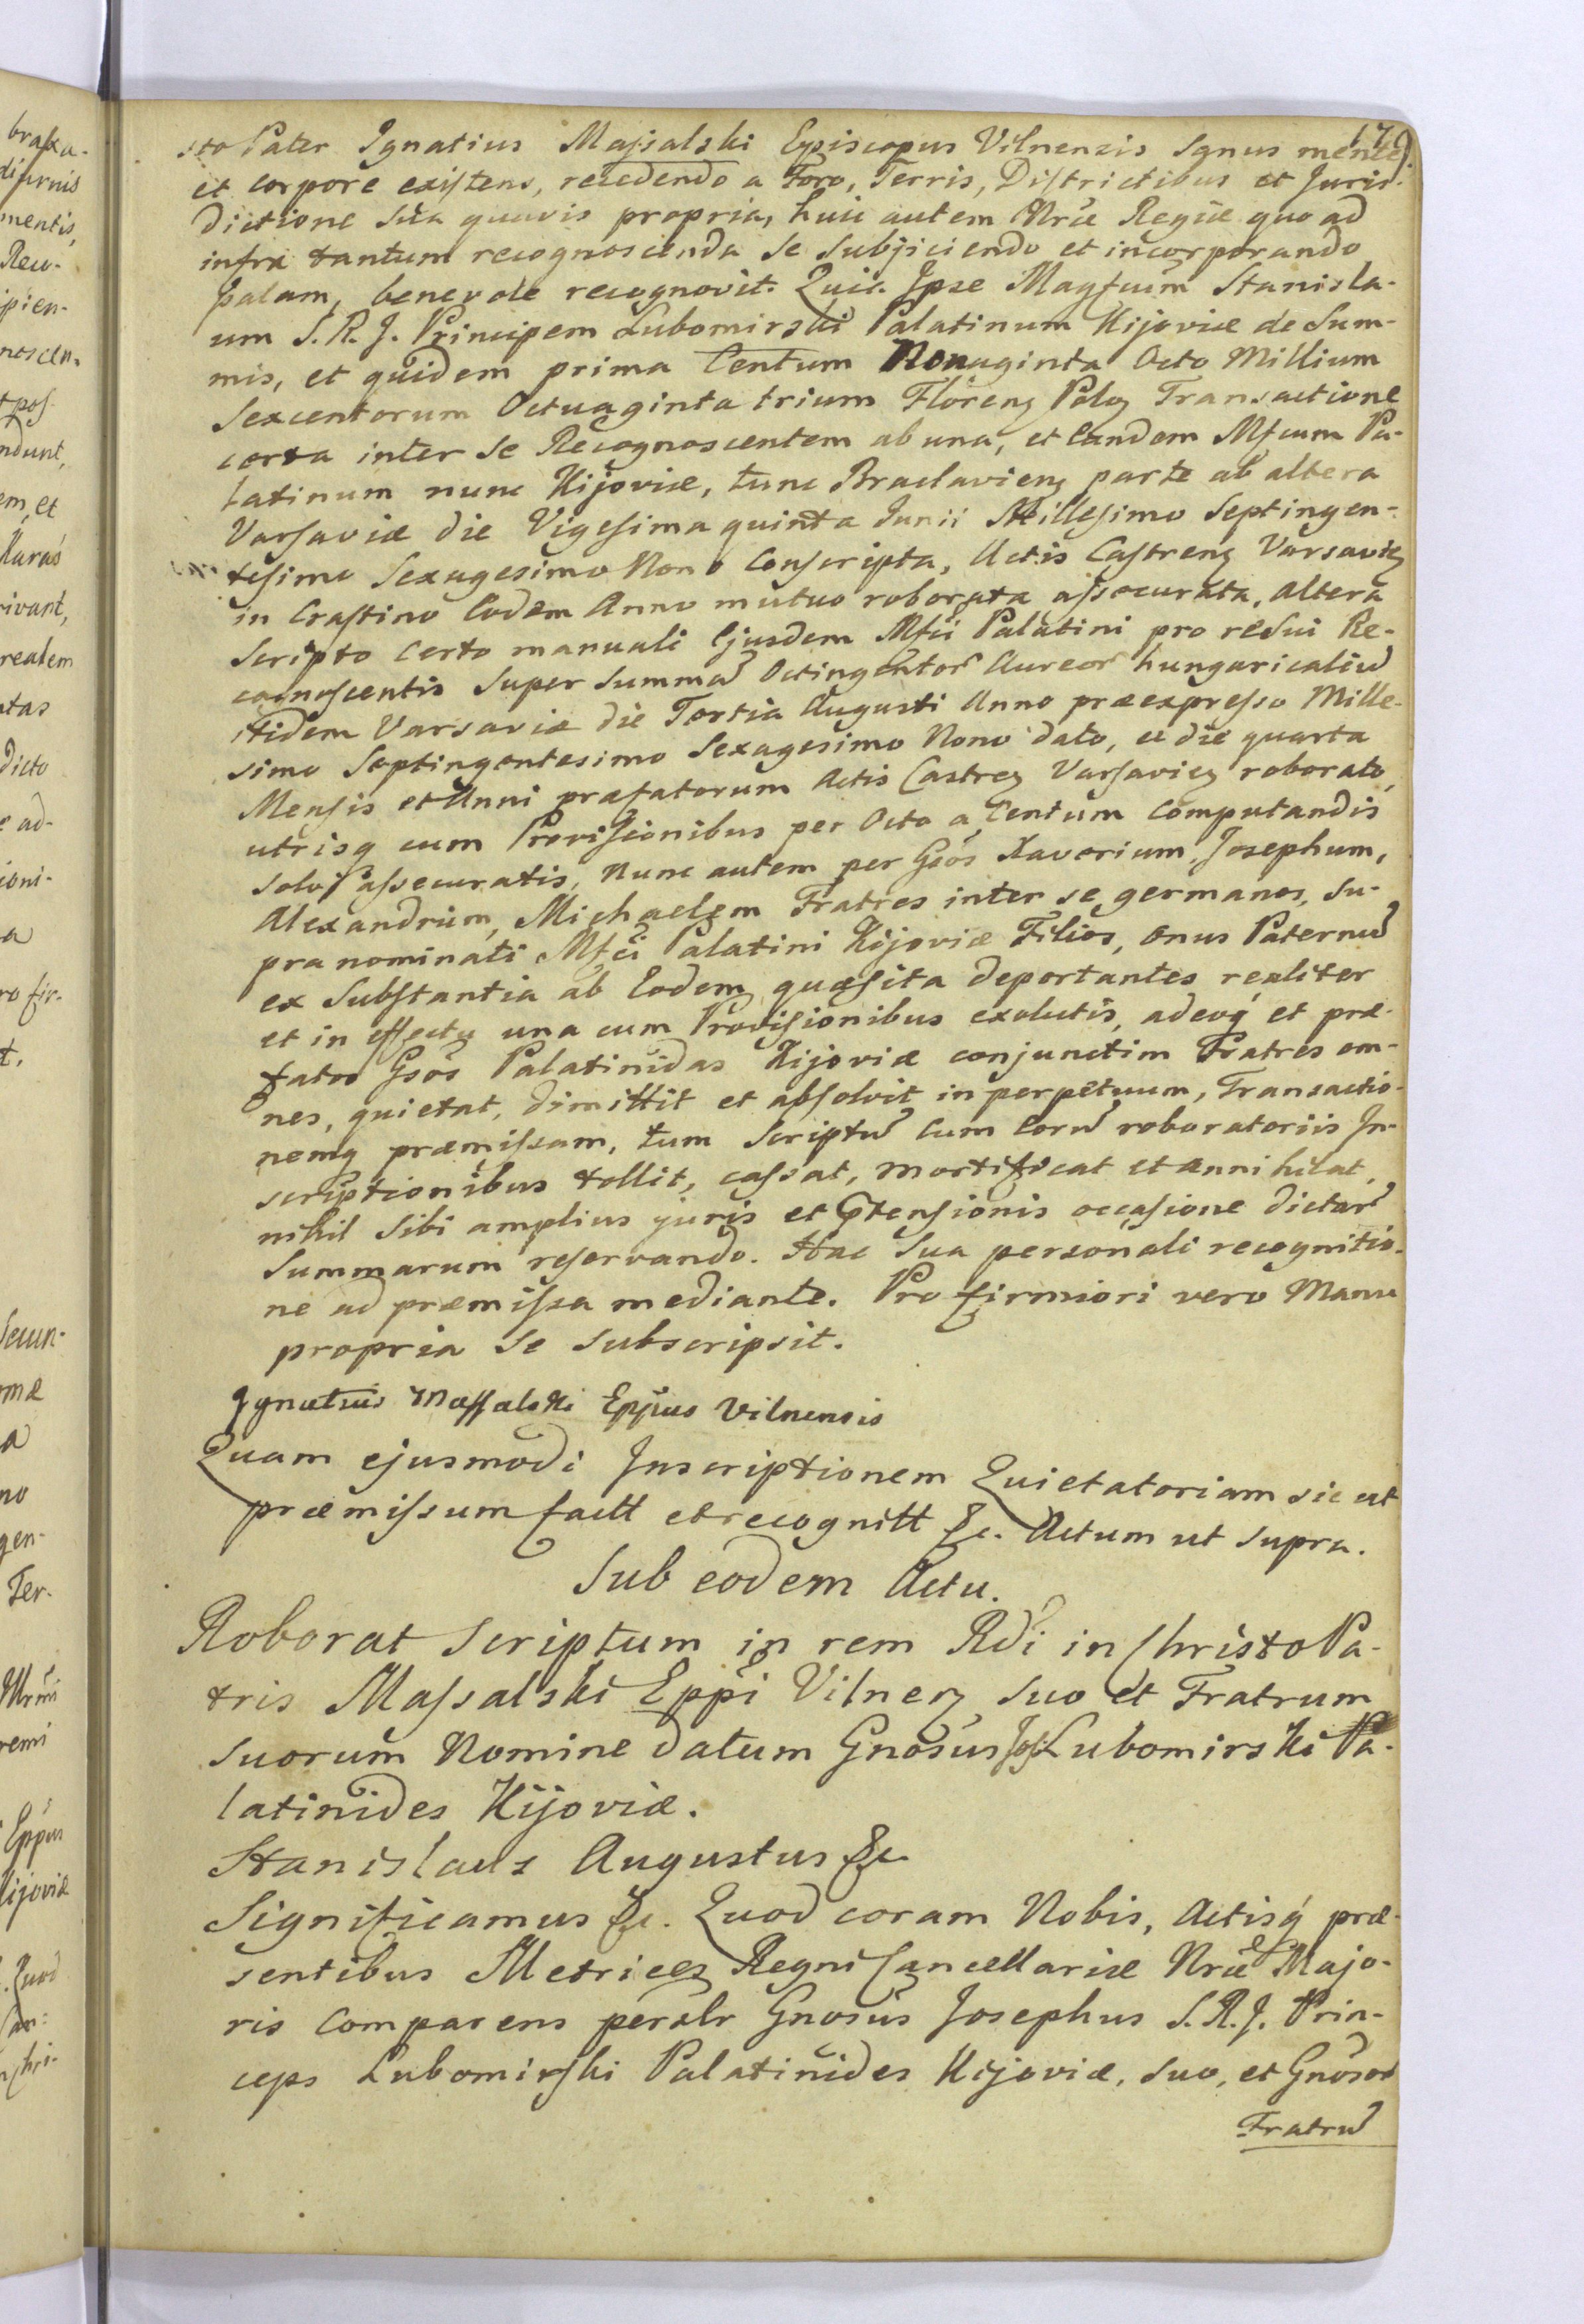 sto Pater Ignatius Massalski Episcopus Vilnensis Sanus mente
et corpore existens, recedendo a Foro, Terris, Districtibus et Juris-
dictione Sua quavis propria, huic autem Nræ Regiæ quo ad
infra tantum recognoscenda se subjiciendo et incorporando
palam, benevole recognovit. Quia Ipse Magfcum Stanisla-
um S. R. J. Principem Lubomirski Palatinum Kijoviæ de Sum-
mis, et quidem prima Centum Nonaginta Octo Millium
Sexcentorum Octuaginta trium Floreng Polog Transactione
certa inter se Recognoscentem ab una, et eundem Mfcum Pa-
latinum nunc Kijoviæ, tunc Braclavieng parte ab altera
Varsaviæ die Vigesima quinta Junii Millesimo Septingen-
tesimo Sexagesimo Nono Conscripta, Actis Castreng Varsavieg
in Crastino Eodem Anno mutuo roborata assecurata, altera
Scripto Certo manuali Ejusdem Mfci Palatini pro re sui Re-
cognoscentis super summa Octingentor Aureor hungaricaliu
itidem Varsaviæ die Tertia Augusti Anno præexpresso Mille-
simo Septingentesimo Sexagesimo Nono dato, et die quarta
Mensis et Anni præfatorum Actis Castreg Varsavieg roborato,
utrisq cum Provisionibus per Octo a Centum Computandis
solvi assecuratis, nunc autem per Gsos Xaverium, Josephum,
Alexandrum, Michaelem Fratres inter se germanos, su-
pra nominati Mfci Palatini Kijoviæ Filios, onus Paternu
ex Substantia ab Eodem quæsita deportantes realiter
et in effectu una cum Provisionibus exolutis, adeoq et præ-
fatos Gsos Palatinidas Kijoviæ conjunctim Fratres om-
nes, quietat, dimittit et absolvit in perpetuum, Transactio-
nemq præmissam, tum Scriptu cum Eoru roboratoriis In-
scriptionibus tollit, cassat, mortificat et annihilat,
nihil sibi amplius juris et ptensionis occasione dictar
Summarum reservando. Hac Sua personali recognitio-
ne ad præmissa mediante. Pro firmiori vero Manu
propria se subscripsit.
Ignatius Massalski Eppus Vilnensis
Quam ejusmodi Inscriptionem Quietatoriam sic ut
præmissum factt et recognitt &c. Actum ut supra.
Sub eodem Actu.
Roborat Scriptum in rem Rdi in Christo Pa-
tris Massalski Eppi Vilneg suo et Fratrum
suorum Nomine datum Gnosus Jos: Lubomirski Pa-
latinides Kijoviæ.
Stanislaus Augustus &c
Significamus &c. Quod coram Nobis, Actisq præ-
sentibus Metrices Regni Cancellariæ Nræ Majo-
ris Comparens persolr Gnosus Josephus S. R. J. Prin-
ceps Lubomirski Palatinides Kijoviæ, suo, et Gnosor
Fratru